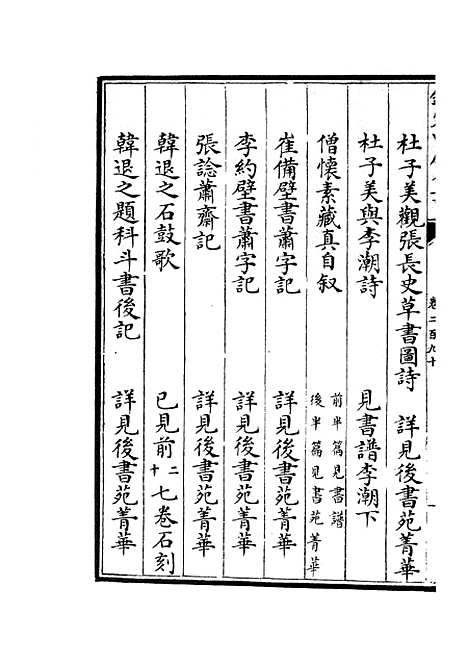 卷二百九十
杜子美觀張長史草書圖詩　詳見後書苑菁華
杜子美與李潮詩　見書譜李潮下
僧懷素藏真自叙　前半篇見書譜後半篇見書苑菁華
崔備壁書蕭字記　詳見後書苑菁華
李約壁書蕭字記　詳見後書苑菁華
張諗蕭齋記　詳見後書苑菁華
韓退之石鼓歌　已見前二十七卷石刻
韓退之題科斗書後記　詳見後書苑菁華